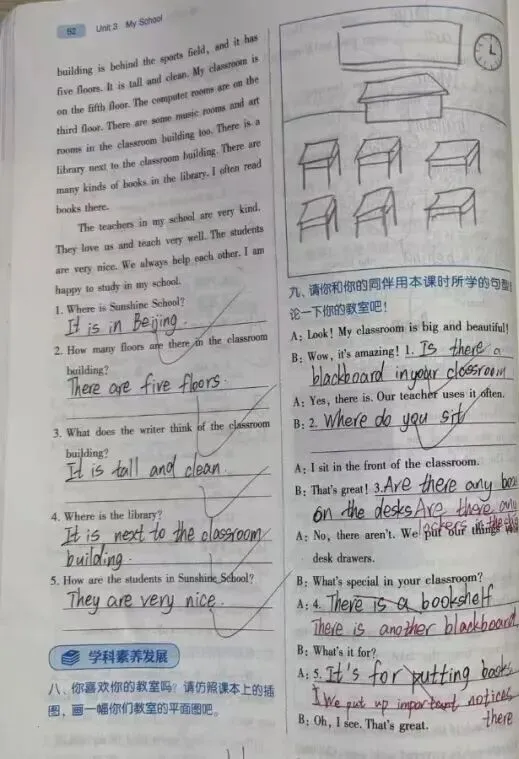 52 Unit 3 My School
building is behind the sports field, and it has
five floors. It is tall and clean. My classroom is
on the fifth floor. The computer rooms are on the
third floor. There are some music rooms and art
rooms in the classroom building too. There is a
library next to the classroom building. There are
many kinds of books in the library. I often read
books there.
The teachers in my school are very kind.
They love us and teach very well. The students
are very nice. We always help each other. I am
happy to study in my school.
1. Where is Sunshine School?
It is in Beijing.
2. How many floors are there in the classroom
building?
There are five floors.
3. What does the writer think of the classroom
building?
It is tall and clean.
4. Where is the library?
It is next to the classroom
building.
5. How are the students in Sunshine School?
They are very nice.
学科素养发展
八、你喜欢你的教室吗？请仿照课本上的插
图，画一幅你们教室的平面图吧。
九、请你和你的同伴用本课时所学的句型
论一下你的教室吧！
A: Look! My classroom is big and beautiful!
B: Wow, it's amazing! 1. Is there a
blackboard in your classroom
A: Yes, there is. Our teacher uses it often.
B: 2. Where do you sit
A: I sit in the front of the classroom.
B: That's great! 3. Are there any
on the desks Are there any
lockers in the
A: No, there aren't. We put our things
desk drawers.
B: What's special in your classroom?
A: 4. There is a bookshelf
There is another blackboard.
B: What's it for?
A: 5. It's for putting books
We put up important notices
there
B: Oh, I see. That's great.